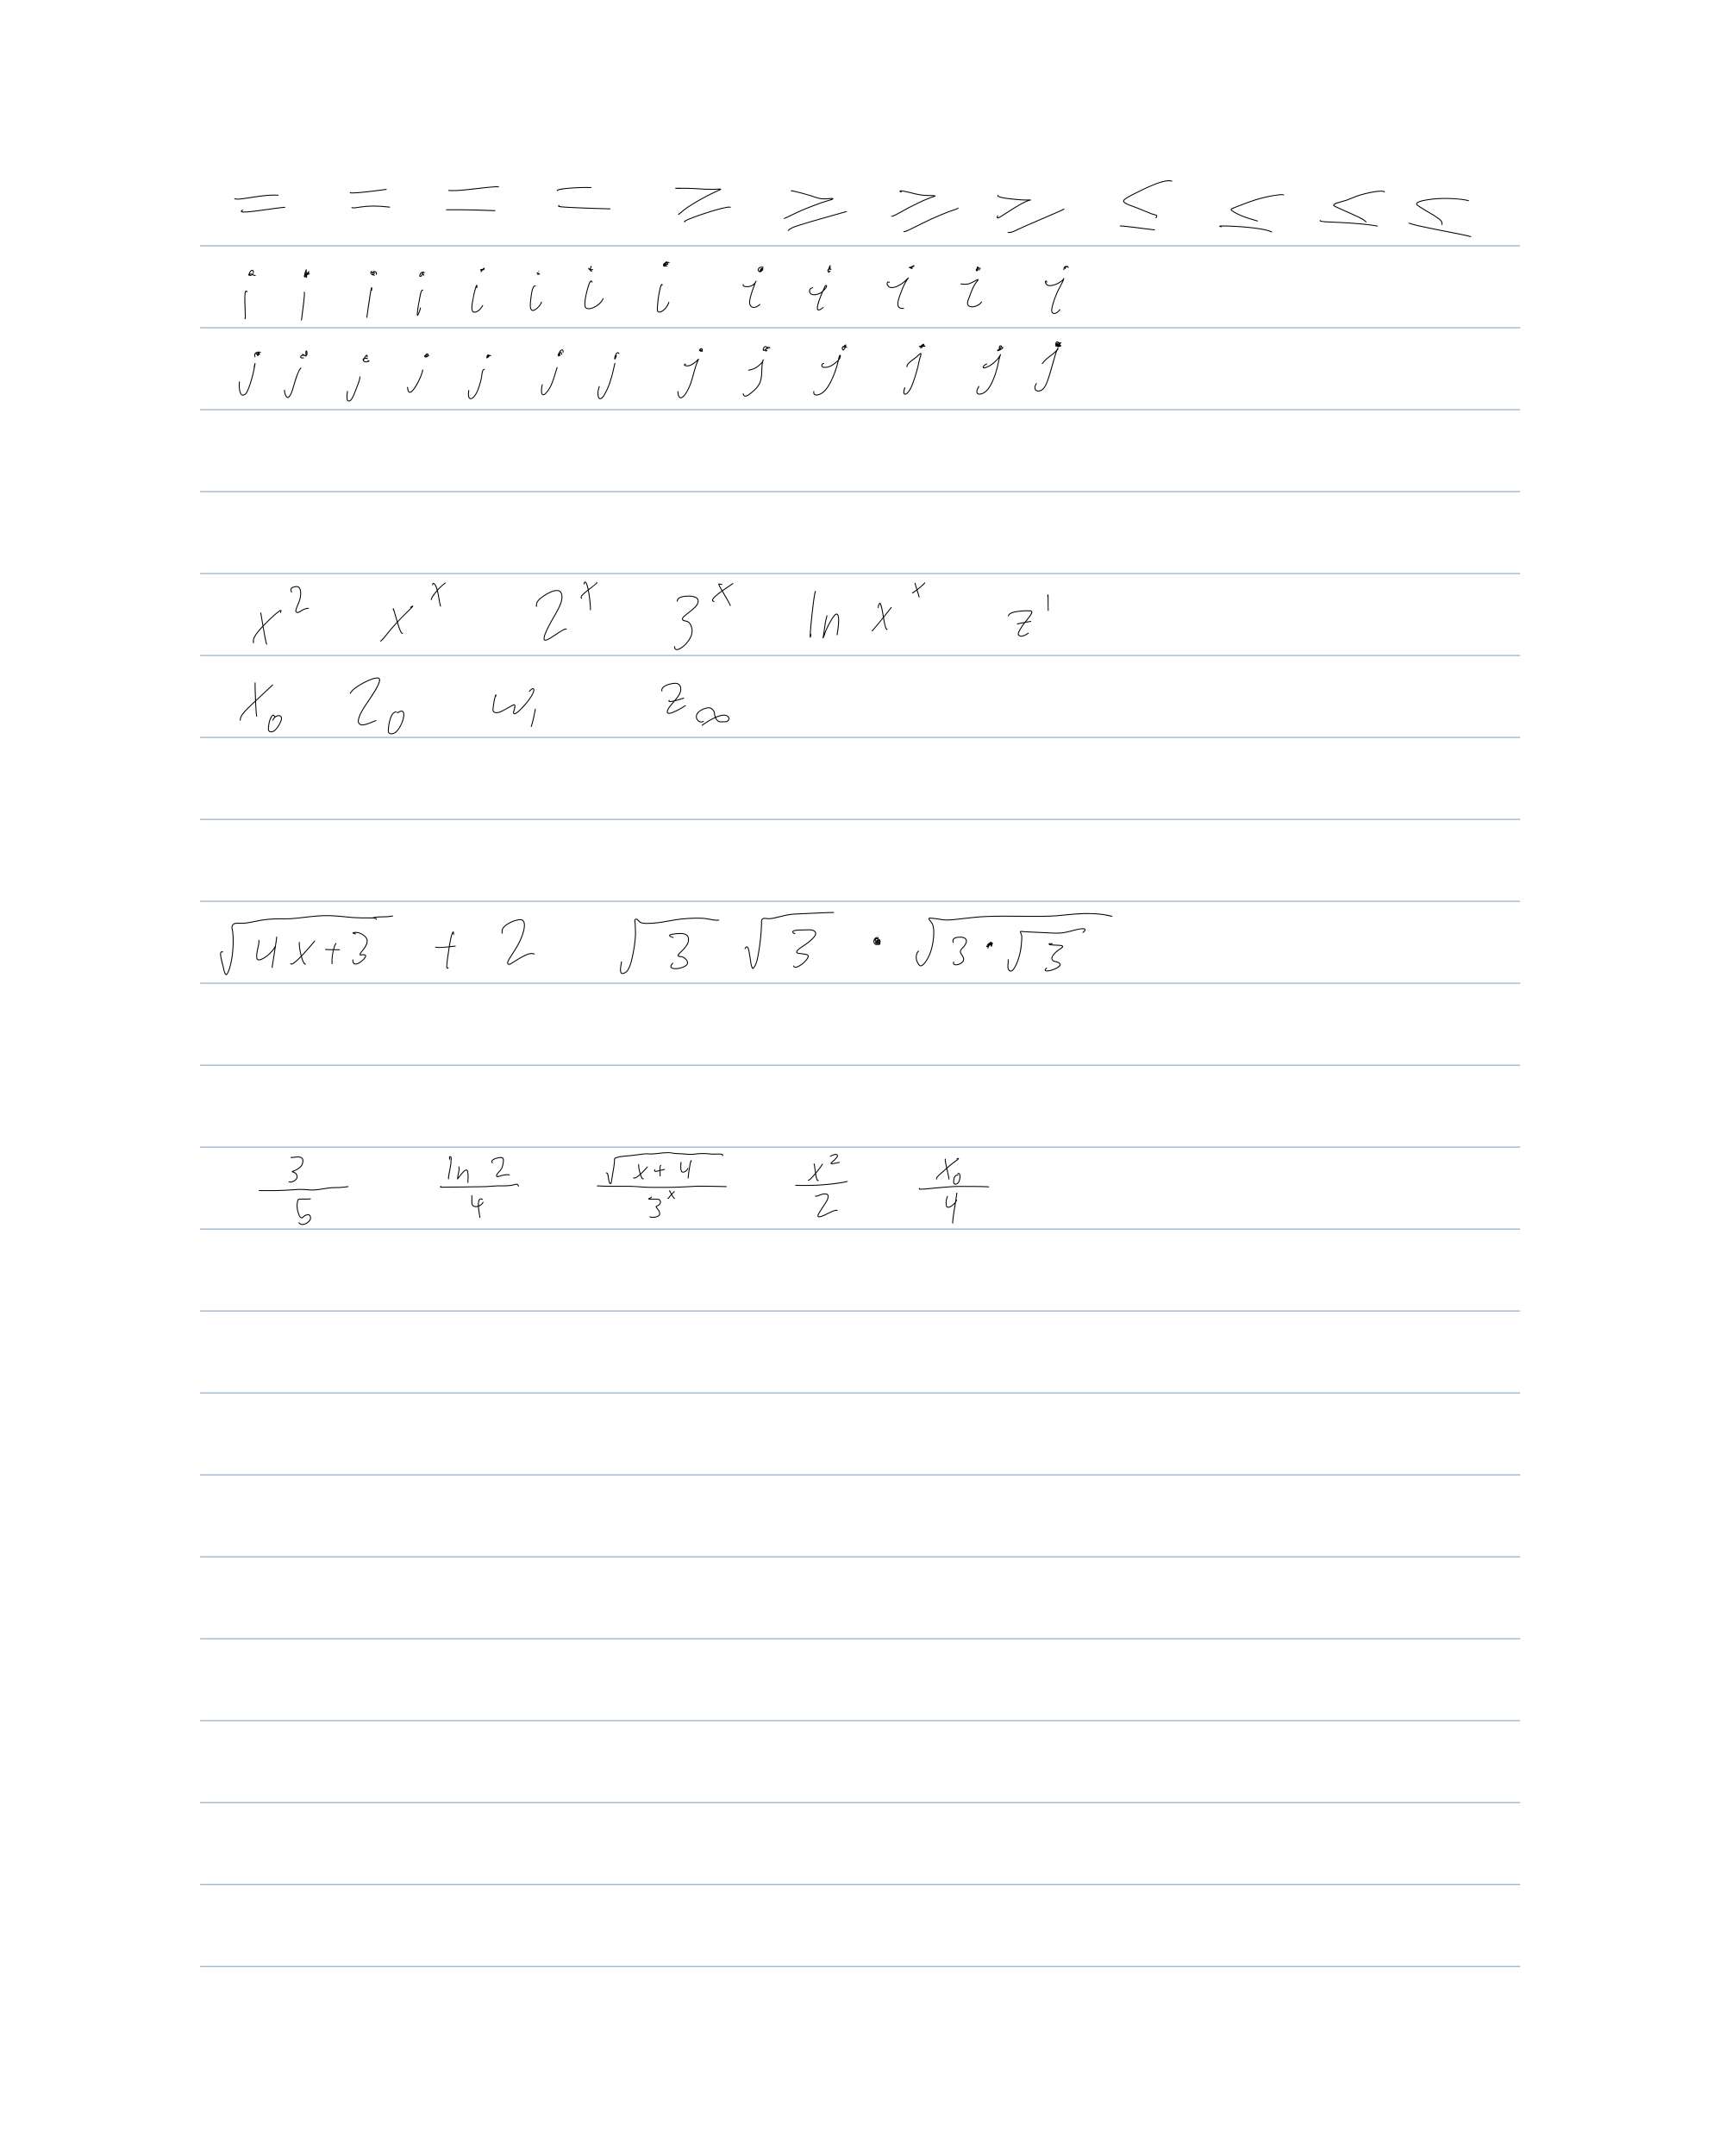 = = = = ≥ ≥ ≥ ≥ ≤ ≤ ≤ ≤
i i i i i i i i i i i i i
j j j j j j j j j j j j j
x² xˣ 2ˣ 3ˣ ln xˣ z¹
x₀ 2₀ u₁ z_∞
√(4x+3) + 2 √3 √3 · √(3·√3)
3/5 ln 2/4 √(x+4)/3ˣ x²/2 x₀/4